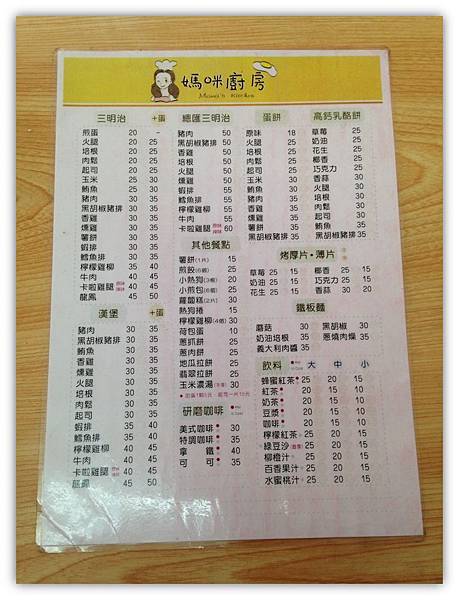 媽咪廚房
Mama's Kitchen
三明治 +蛋
煎蛋 20 –
火腿 20 25
培根 20 25
肉鬆 20 25
起司 20 25
玉米 25 30
鮪魚 25 30
豬肉 30 35
黑胡椒豬排 30 35
香雞 30 35
燻雞 30 35
薯餅 30 35
蝦排 30 35
鱈魚排 30 35
檸檬雞柳 35 40
牛肉 40 45
卡啦雞腿 40 45
龍鳳 45 50
漢堡 +蛋
豬肉 30 35
黑胡椒豬排 30 35
鮪魚 30 35
香雞 30 35
燻雞 30 35
火腿 30 35
培根 30 35
肉鬆 30 35
起司 30 35
蝦排 35 40
鱈魚排 35 40
檸檬雞柳 35 40
牛肉 40 45
卡啦雞腿 40 45
龍鳳 45 50
總匯三明治
豬肉 50
黑胡椒豬排 50
火腿 50
培根 50
香雞 50
燻雞 50
蝦排 55
鱈魚排 55
檸檬雞柳 55
牛肉 55
卡啦雞腿 60
其他餐點
薯餅(1片) 15
煎餃(6個) 25
小熱狗(3根) 20
小煎包(6個) 25
蘿蔔糕(2片) 30
熱狗捲 15
檸檬雞柳(4個) 30
荷包蛋 10
蔥抓餅 25
蔥肉餅 25
地瓜拉餅 25
翡翠拉餅 25
玉米濃湯 30
研磨咖啡
美式咖啡 30
特調咖啡 35
拿鐵 40
可可 35
蛋餅
原味 18
蔬菜 25
火腿 25
培根 25
玉米 25
肉鬆 25
起司 25
鮪魚 25
豬肉 35
香雞 35
燻雞 35
薯餅 35
黑胡椒豬排 35
高鈣乳酪餅
草莓 25
奶油 25
花生 25
椰香 25
巧克力 25
香蒜 30
火腿 30
培根 30
肉鬆 30
起司 30
鮪魚 30
豬肉 35
黑胡椒豬排 35
烤厚片・薄片
草莓 25 15 椰香 25 15
奶油 25 15 巧克力 25 15
花生 25 15 香蒜 30 20
鐵板麵
蘑菇 30 黑胡椒 30
奶油培根 35 蔥燒肉燥 35
義大利肉醬 35
飲料 大 中 小
蜂蜜紅茶 25 20 15
紅茶 20 15 10
奶茶 20 15 10
豆漿 20 15 10
咖啡 20 15 10
檸檬紅茶 25 20 15
綠豆沙 25 20 15
柳橙汁 25 20 15
百香果汁 25 20 15
水蜜桃汁 25 20 15